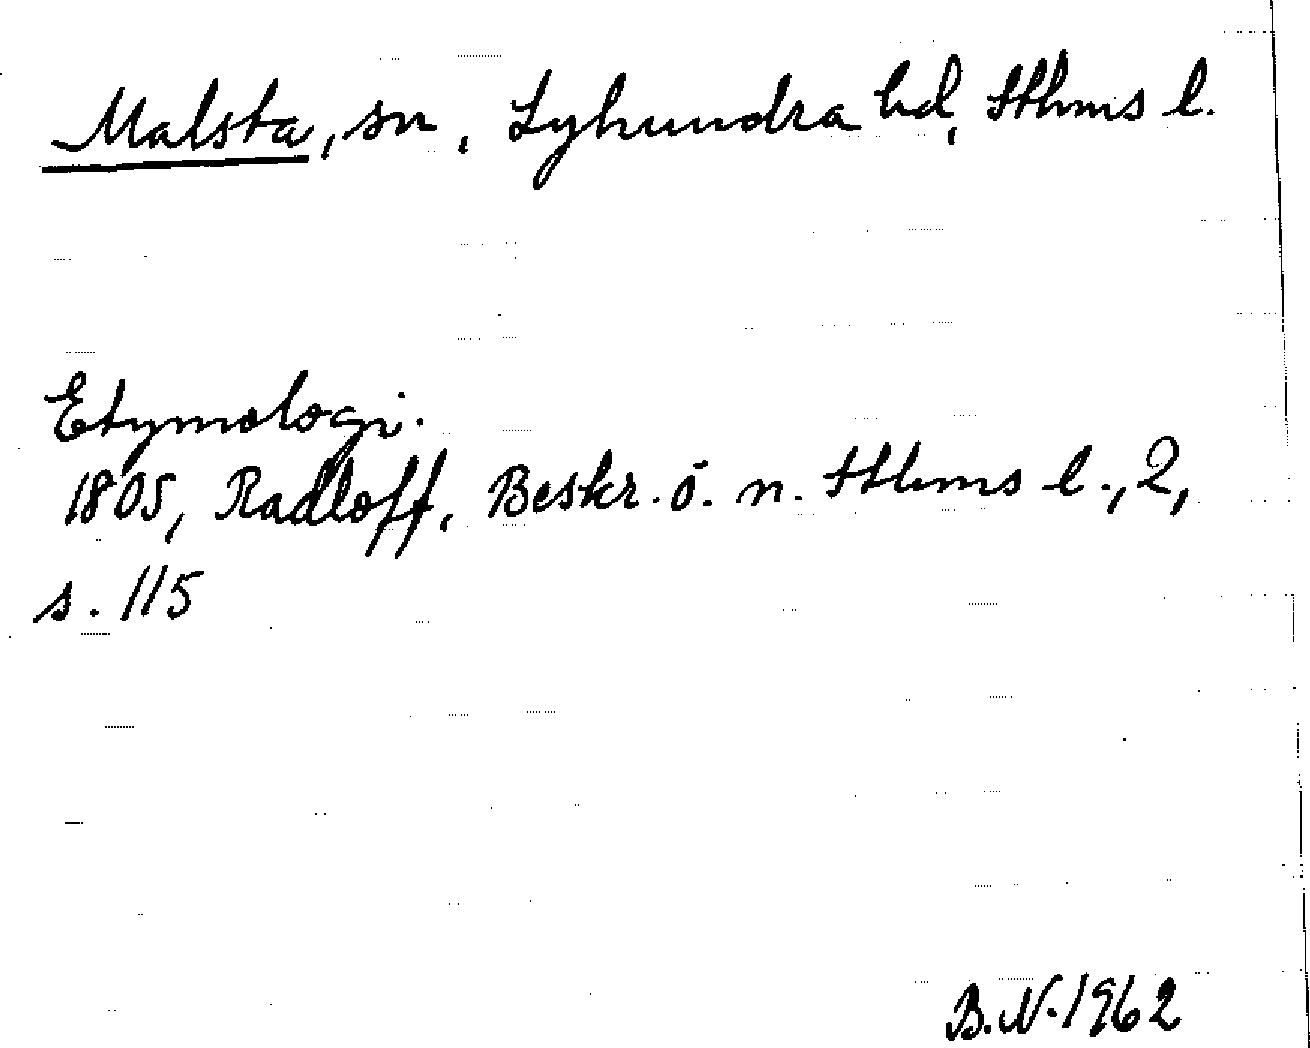 Malsta, sn, Lyhundra hd, Sthms l.
Etymologi.
1805, Radloff, Beskr. ö. n. Sthms l., 2,
s. 115
B.N. 1962